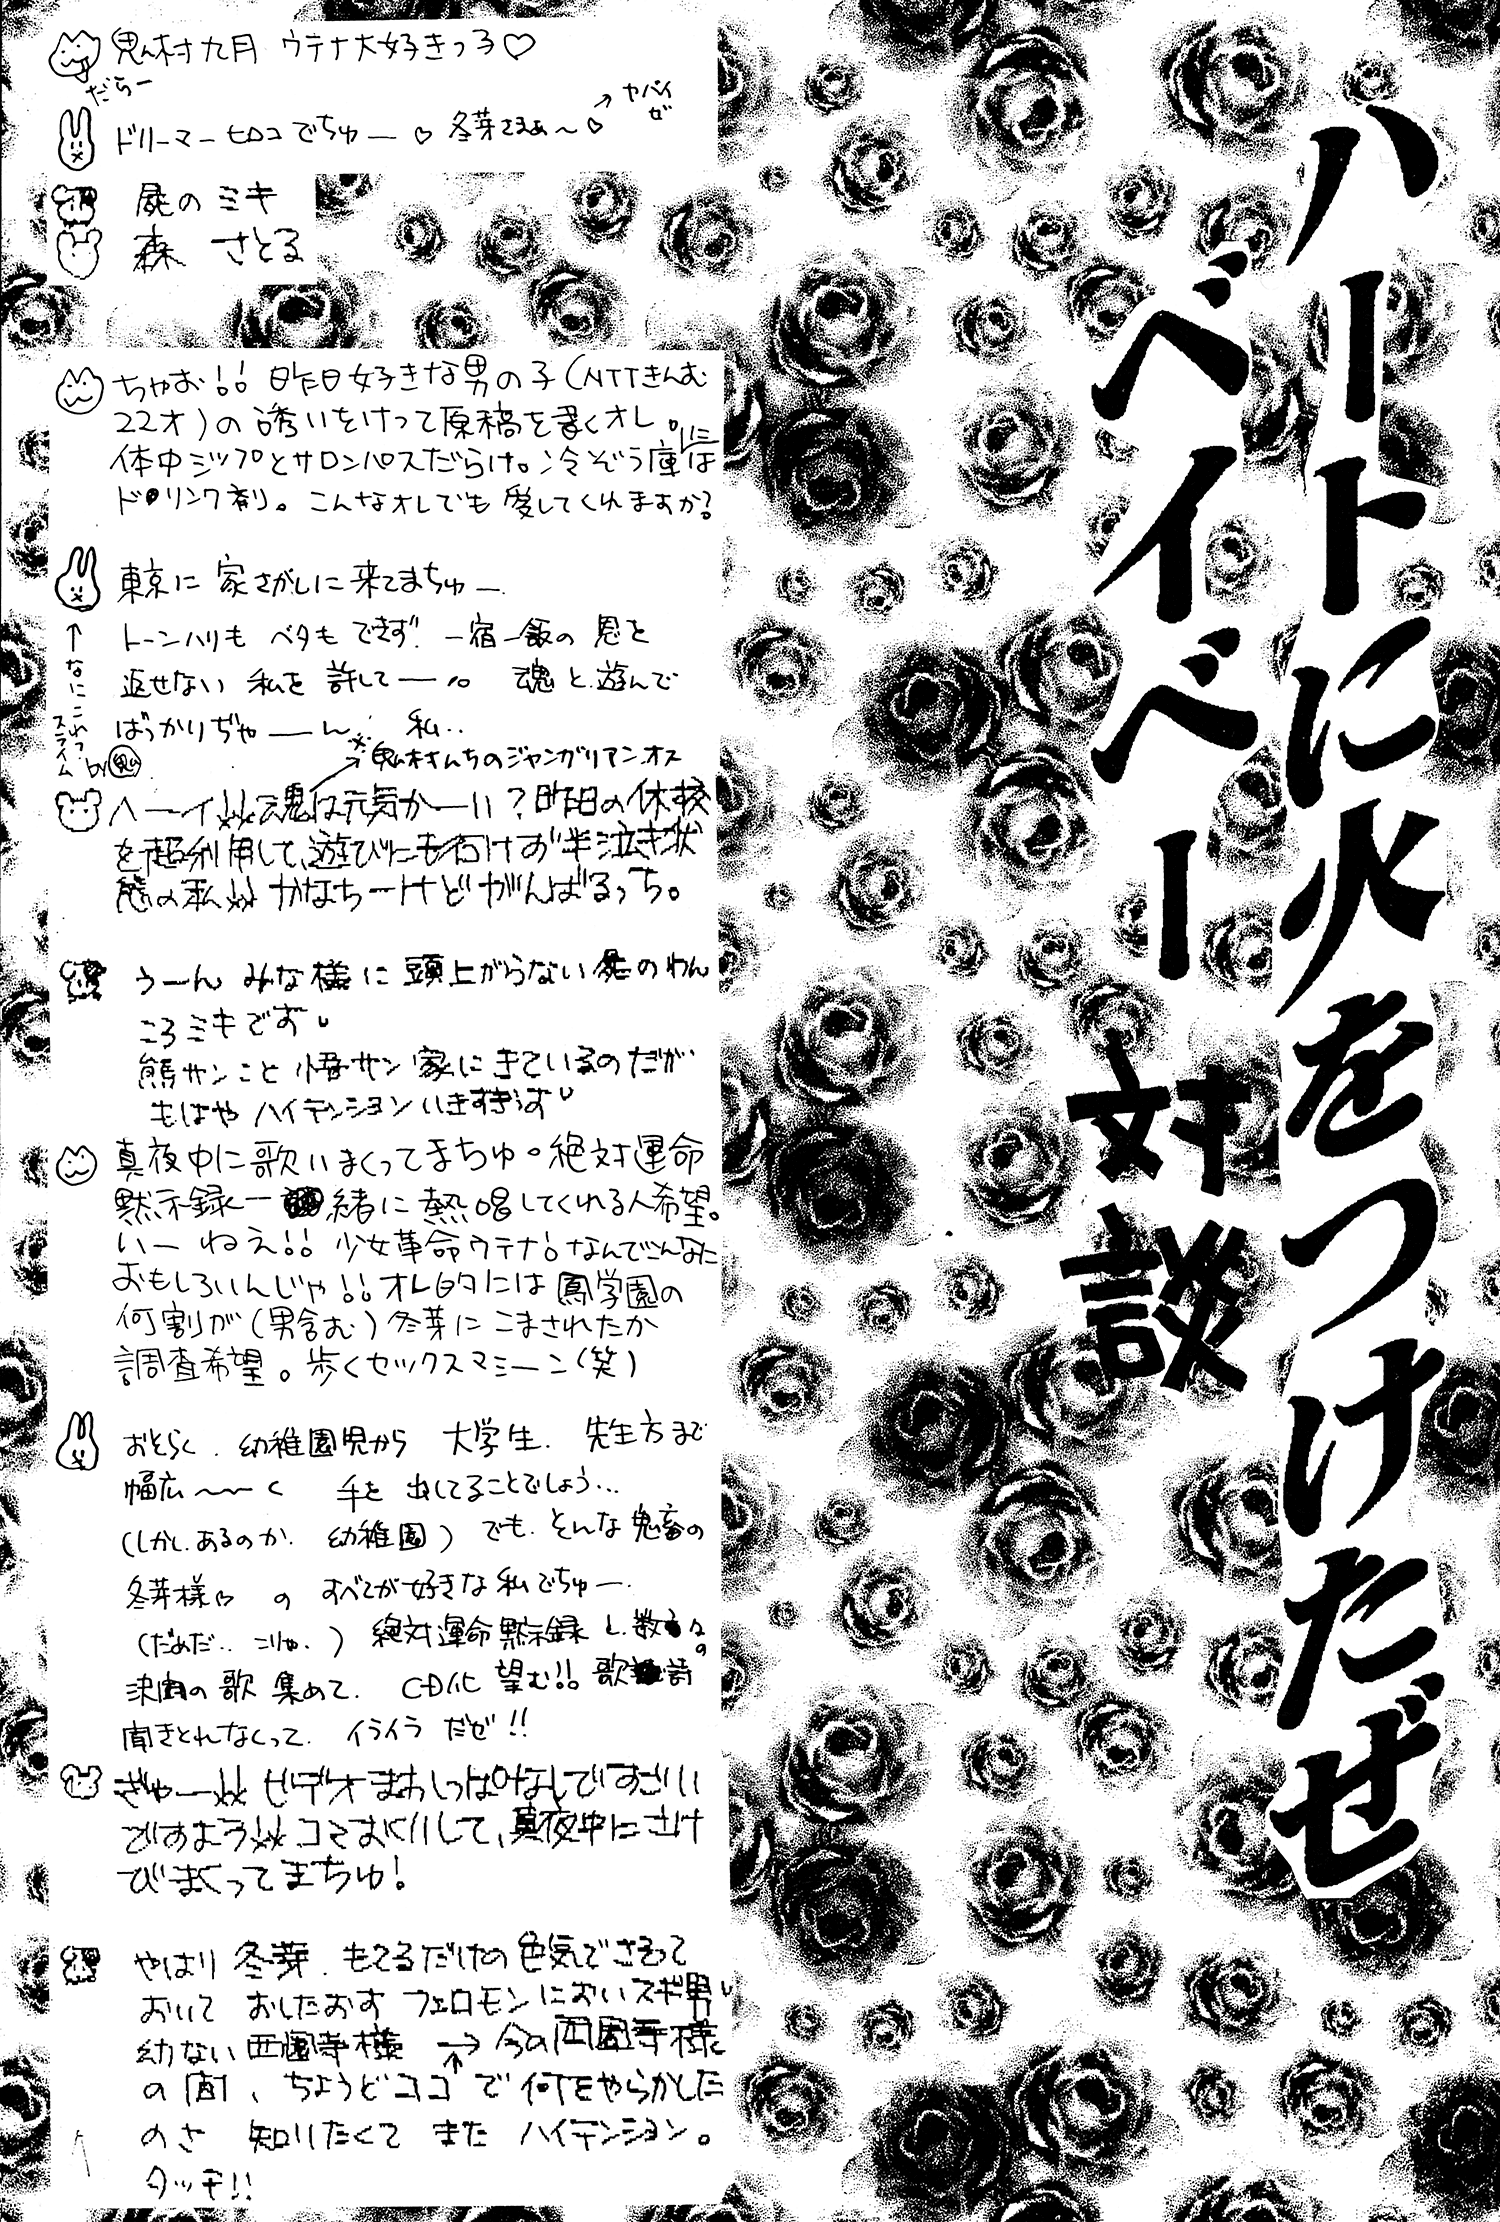 ハートに火をつけたぜ
ベイベー
対談
鬼村九月 ウテナ大好きっ子♡
だらー
ドリーマーヒロコでちゅー♡ 冬芽さまぁ〜♡
→ヤバイ
ぜ
屍のミキ
森 さとる
ちゃお!! 昨日好きな男の子(NTTきんむ
22才)の誘いをけって原稿を書くオレ。
体中ジップとサロンパスだらけ。冷ぞう庫には
ドリンク剤。こんなオレでも愛してくれますか?
東京に 家さがしに来てまちゅー
トーンハリも ベタも できず! 一宿一飯の 恩を
返せない 私を 許してー。 魂と遊んで
ばっかりぢゃーん 私..
↑なにこれっ
スライム by鬼
※鬼村さんちのジャンガリアン.オス
ヘーイ 魂は元気かーい?昨日の休校
を超利用して、遊びにも行けず半泣き状
態の私 かなちーけどがんばるっち。
うーん みな様に 頭上がらない 屍のわん
ころミキです
熊サンこと 悟サン 家にきているのだが
もはや ハイテンションいきすぎっす
真夜中に歌いまくってまちゅ。絶対運命
黙示録一緒に熱唱してくれる人希望。
いーねえ!! 少女革命ウテナ!なんでこんなに
おもしろいんじゃ!! オレ的には 鳳学園の
何割が(男含む)冬芽にこまされたか
調査希望。歩くセックスマシーン(笑)
おそらく、幼稚園児から 大学生、先生方まで
幅広〜〜く 手を 出してることでしょう…
(しかし、あるのか、幼稚園) でも、そんな鬼畜の
冬芽様♡ の すべてが好きな私でちゅー
(だめだ.. こりゃ.) 絶対運命黙示録と、数々の
決闘の歌 集めて、 CD化 望む!! 歌詩
聞きとれなくって、イライラ だぜ!!
ぎゃー ビデオまわしっぱなしですごい
ですよう コマおくりして、真夜中にさけ
びまくってまちゅ!
やはり 冬芽、もてるだけの色気でさそって
おいて おしたおす フェロモンにおいスギ男
幼ない西園寺様 → 今の西園寺様
↑
の間、ちょうどココで何をやらかした
のさ 知りたくて また ハイテンション。
タッチ!!